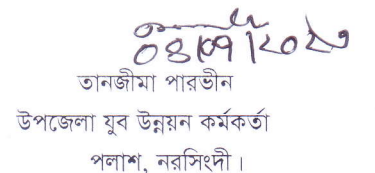 তানজীমা পারভীন
উপজেলা যুব উন্নয়ন কর্মকর্তা
পলাশ, নরসিংদী।